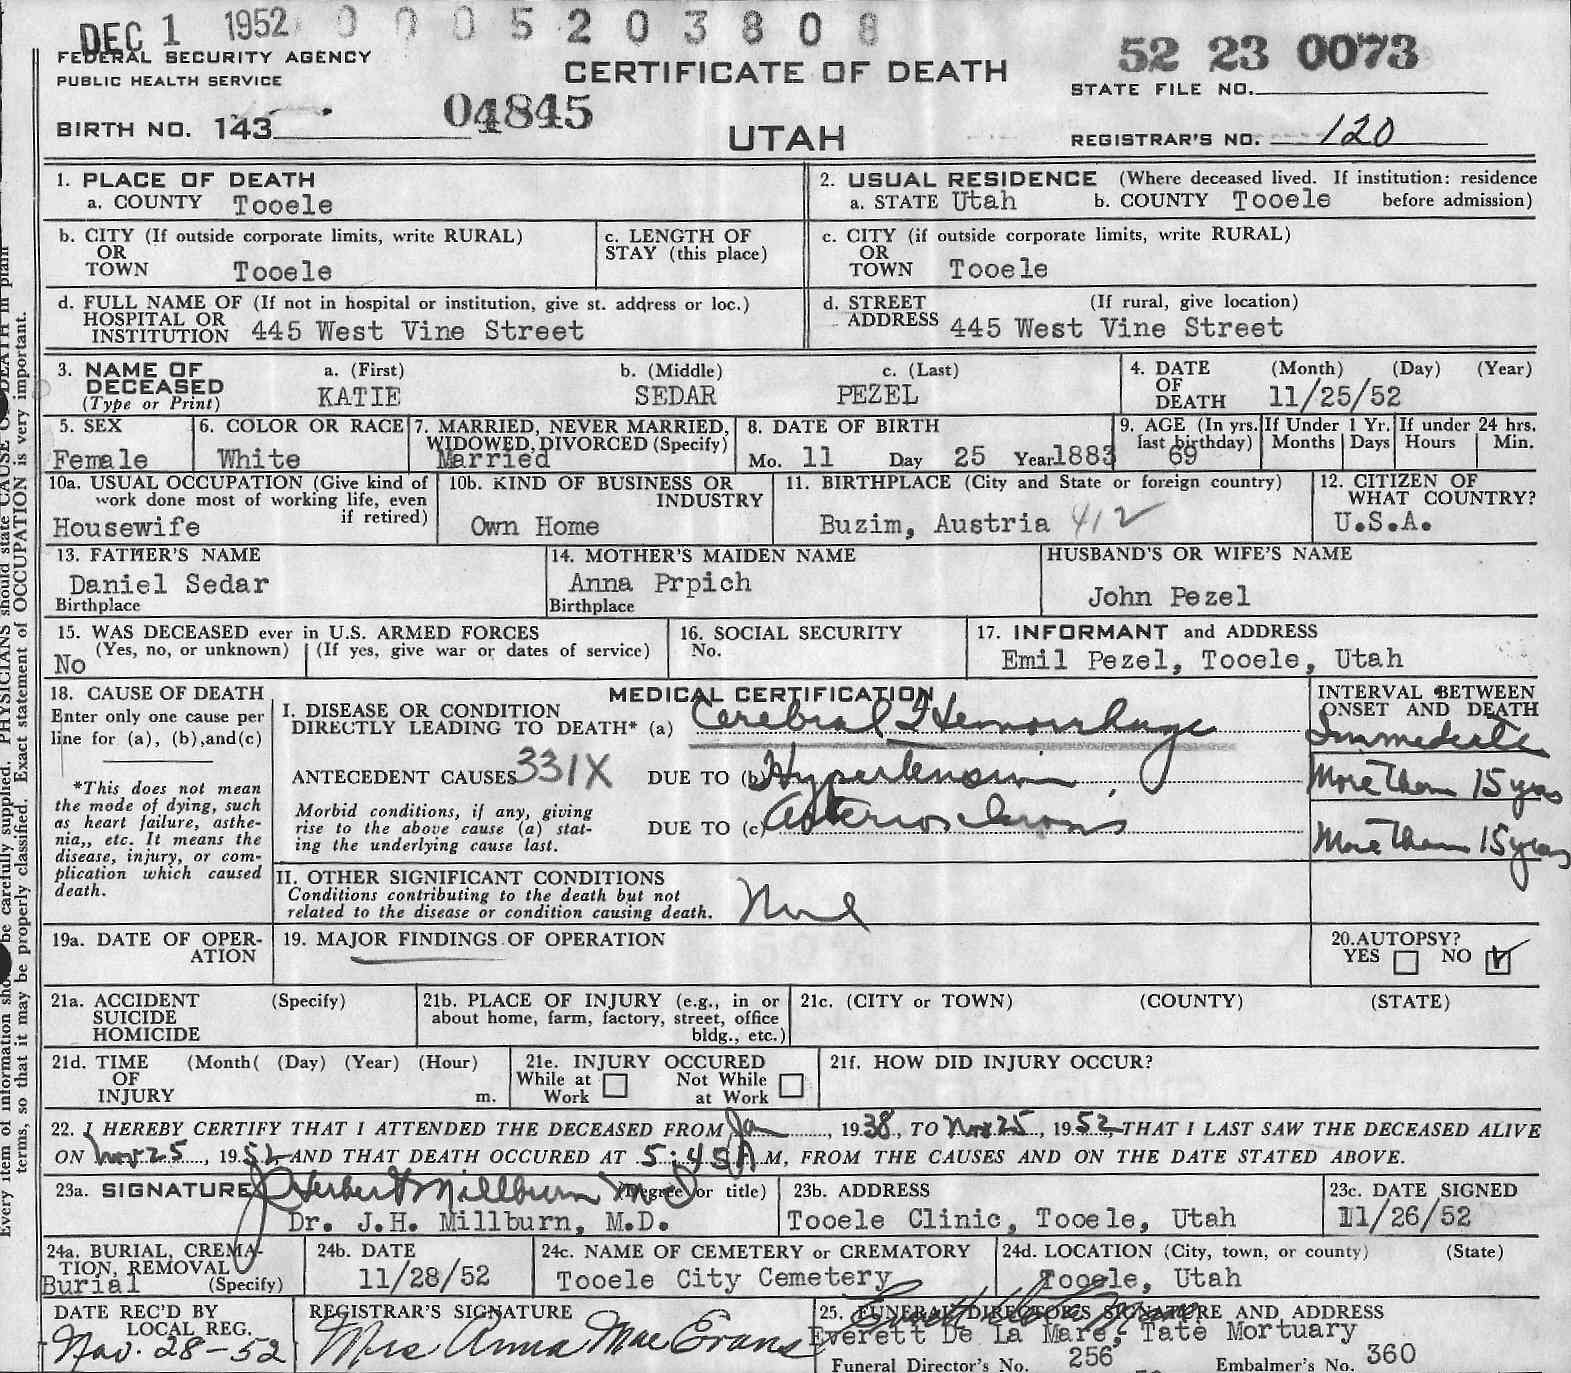 DEC 1 1952 0 0 0 5 2 0 3 8 0 8
FEDERAL SECURITY AGENCY
PUBLIC HEALTH SERVICE
CERTIFICATE OF DEATH
52 23 0073
STATE FILE NO.
BIRTH NO. 143
04845
UTAH
REGISTRAR'S NO. 120
1. PLACE OF DEATH
a. COUNTY Tooele
2. USUAL RESIDENCE (Where deceased lived. If institution: residence
a. STATE Utah b. COUNTY Tooele before admission)
b. CITY (If outside corporate limits, write RURAL)
OR
TOWN Tooele
c. LENGTH OF
STAY (this place)
c. CITY (if outside corporate limits, write RURAL)
OR
TOWN Tooele
d. FULL NAME OF (If not in hospital or institution, give st. address or loc.)
HOSPITAL OR
INSTITUTION 445 West Vine Street
d. STREET (If rural, give location)
ADDRESS 445 West Vine Street
3. NAME OF
DECEASED
(Type or Print)
a. (First)
KATIE
b. (Middle)
SEDAR
c. (Last)
PEZEL
4. DATE (Month) (Day) (Year)
OF
DEATH 11/25/52
5. SEX
Female
6. COLOR OR RACE
White
7. MARRIED, NEVER MARRIED,
WIDOWED, DIVORCED (Specify)
Married
8. DATE OF BIRTH
Mo. 11 Day 25 Year 1883
9. AGE (In yrs.
last birthday)
69
If Under 1 Yr.
Months Days
If under 24 hrs.
Hours Min.
10a. USUAL OCCUPATION (Give kind of
work done most of working life, even
if retired)
Housewife
10b. KIND OF BUSINESS OR
INDUSTRY
Own Home
11. BIRTHPLACE (City and State or foreign country)
Buzim, Austria 412
12. CITIZEN OF
WHAT COUNTRY?
U.S.A.
13. FATHER'S NAME
Daniel Sedar
Birthplace
14. MOTHER'S MAIDEN NAME
Anna Prpich
Birthplace
HUSBAND'S OR WIFE'S NAME
John Pezel
15. WAS DECEASED ever in U.S. ARMED FORCES
(Yes, no, or unknown) (If yes, give war or dates of service)
No
16. SOCIAL SECURITY
No.
17. INFORMANT and ADDRESS
Emil Pezel, Tooele, Utah
18. CAUSE OF DEATH
Enter only one cause per
line for (a), (b),and(c)
*This does not mean
the mode of dying, such
as heart failure, asthe-
nia,, etc. It means the
disease, injury, or com-
plication which caused
death.
MEDICAL CERTIFICATION
I. DISEASE OR CONDITION
DIRECTLY LEADING TO DEATH* (a) Cerebral Hemorrhage
ANTECEDENT CAUSES 331X DUE TO (b) Hypertension
Morbid conditions, if any, giving
rise to the above cause (a) stat-
ing the underlying cause last.
DUE TO (c) Arteriosclerosis
INTERVAL BETWEEN
ONSET AND DEATH
Immediate
More than 15 years
More than 15 years
II. OTHER SIGNIFICANT CONDITIONS
Conditions contributing to the death but not
related to the disease or condition causing death.
None
19a. DATE OF OPER-
ATION
19. MAJOR FINDINGS OF OPERATION
20. AUTOPSY?
YES NO
21a. ACCIDENT (Specify)
SUICIDE
HOMICIDE
21b. PLACE OF INJURY (e.g., in or
about home, farm, factory, street, office
bldg., etc.)
21c. (CITY or TOWN) (COUNTY) (STATE)
21d. TIME (Month( (Day) (Year) (Hour)
OF
INJURY m.
21e. INJURY OCCURED
While at Not While
Work at Work
21f. HOW DID INJURY OCCUR?
22. I HEREBY CERTIFY THAT I ATTENDED THE DECEASED FROM Jan, 1938, TO Nov 25, 1952, THAT I LAST SAW THE DECEASED ALIVE
ON Nov 25, 1952, AND THAT DEATH OCCURED AT 5:45 A M, FROM THE CAUSES AND ON THE DATE STATED ABOVE.
23a. SIGNATURE J Herbert Millburn MD (Degree or title)
Dr. J.H. Millburn, M.D.
23b. ADDRESS
Tooele Clinic, Tooele, Utah
23c. DATE SIGNED
11/26/52
24a. BURIAL, CREMA-
TION, REMOVAL
Burial (Specify)
24b. DATE
11/28/52
24c. NAME OF CEMETERY or CREMATORY
Tooele City Cemetery
24d. LOCATION (City, town, or county) (State)
Tooele, Utah
DATE REC'D BY
LOCAL REG.
Nov. 28-52
REGISTRAR'S SIGNATURE
Mrs Anna Mae Evans
25. FUNERAL DIRECTOR'S SIGNATURE AND ADDRESS
Everett De La Mare
Everett De La Mare, Tate Mortuary
Funeral Director's No. 256 Embalmer's No. 360
Every item of information should be carefully supplied. PHYSICIANS should state CAUSE OF DEATH in plain
terms, so that it may be properly classified. Exact statement of OCCUPATION is very important.